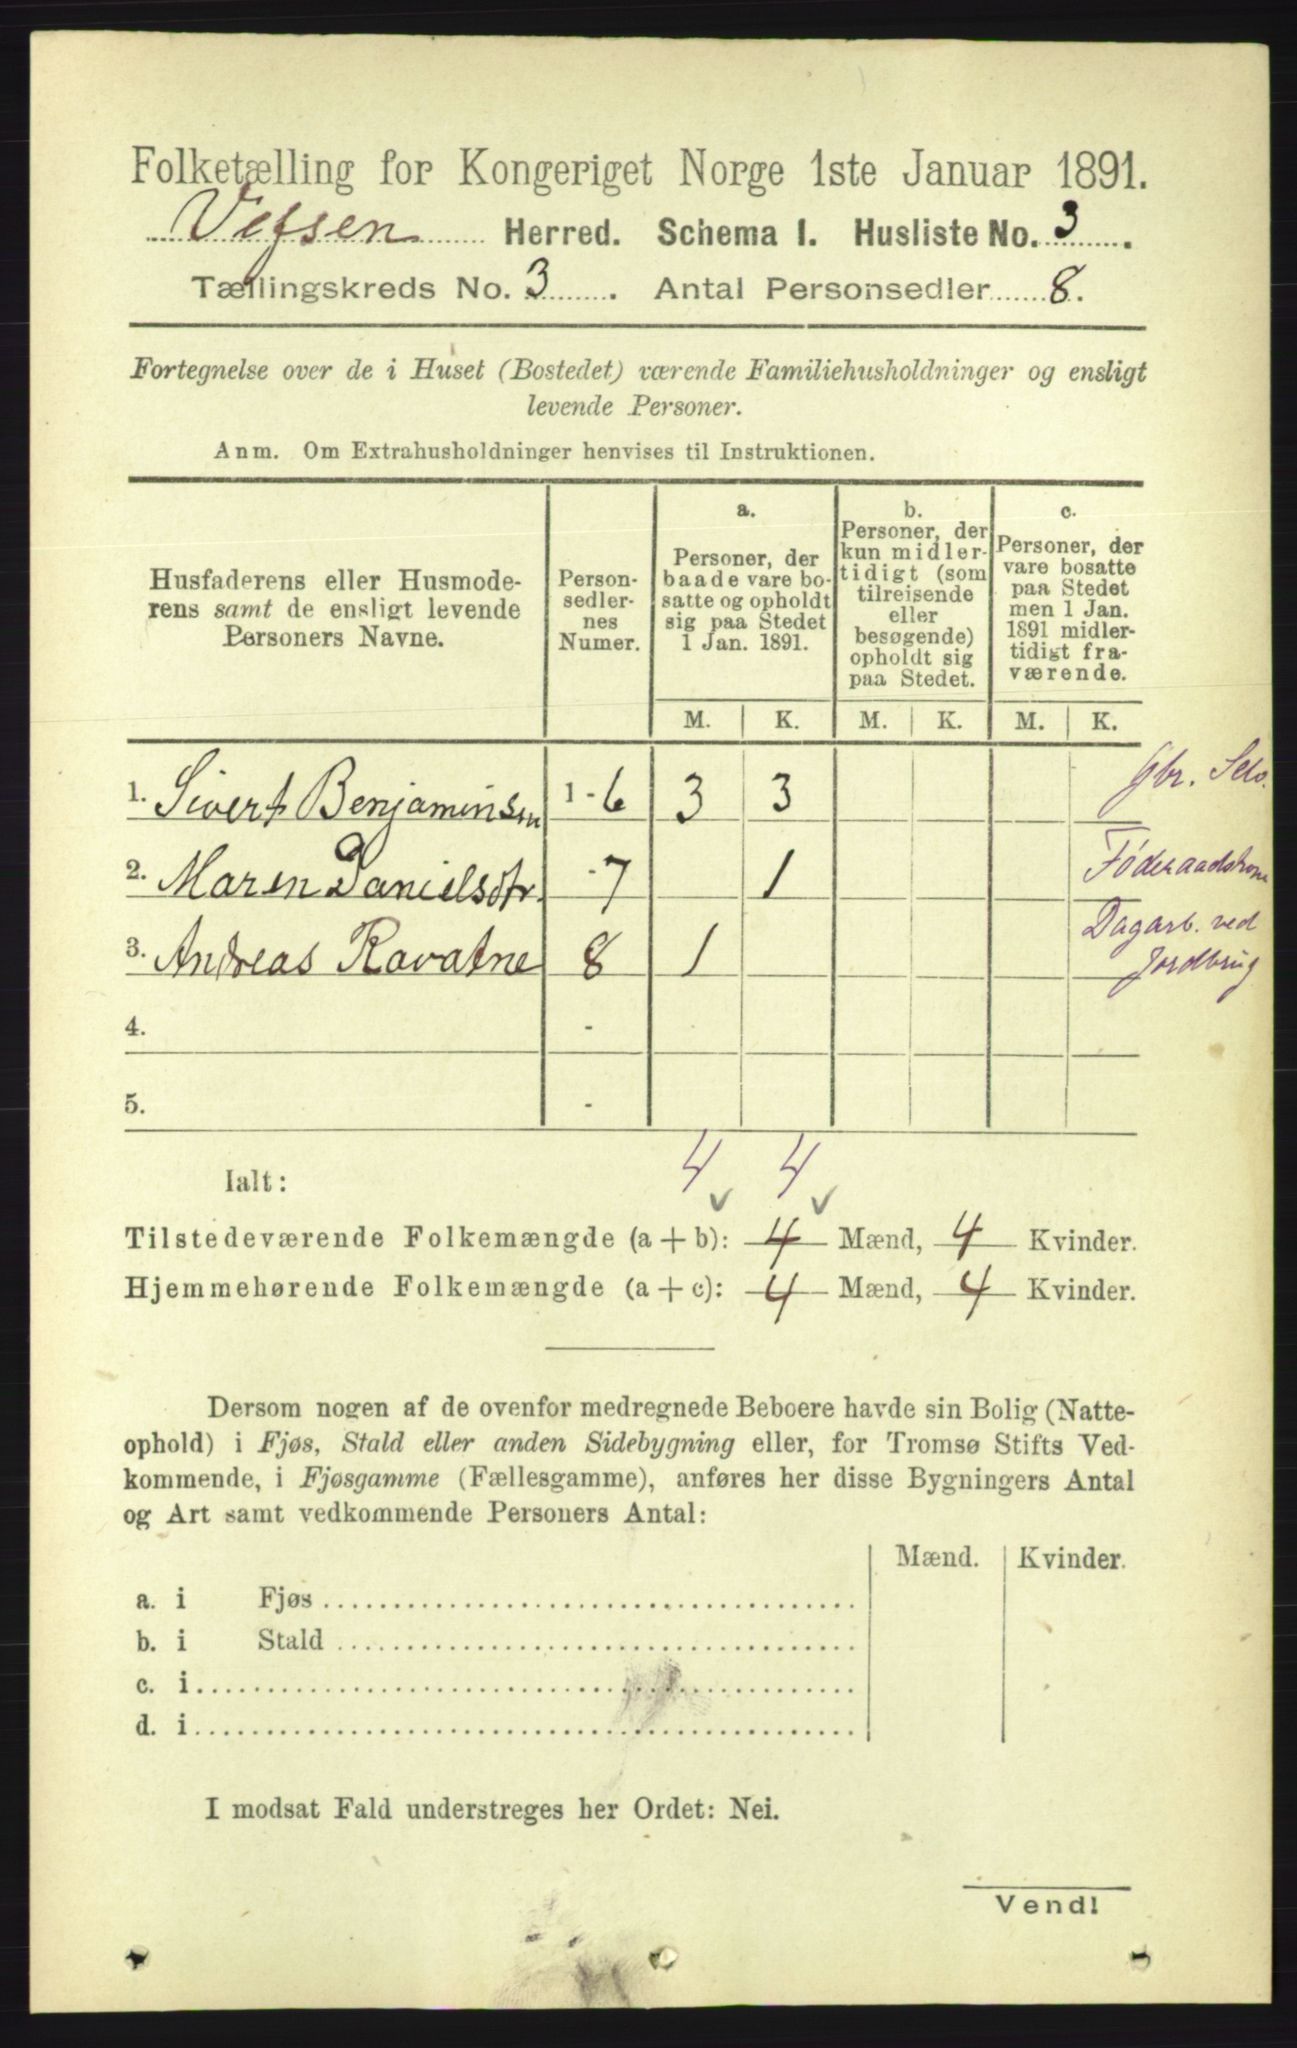 Folketælling for Kongeriget Norge 1ste Januar 1891.
Vefsen Herred. Schema I. Husliste No. 3.
Tællingskreds No. 3. Antal Personsedler 8.
Fortegnelse over de i Huset (Bostedet) værende Familiehusholdninger og ensligt
levende Personer.
Anm. Om Extrahusholdninger henvises til Instruktionen.
Husfaderens eller Husmode-
rens samt de ensligt levende
Personers Navne.
Person-
sedler-
nes
Numer.
a.
Personer, der
baade vare bo-
satte og opholdt
sig paa Stedet
1 Jan. 1891.
b.
Personer, der
kun midler-
tidigt (som
tilreisende
eller
besøgende)
opholdt sig
paa Stedet.
c.
Personer, der
vare bosatte
paa Stedet
men 1 Jan.
1891 midler-
tidigt fra-
værende.
M. K. M. K. M. K.
1. Sivert Benjaminsen 1-6 3 3 Gbr. Selv.
2. Maren Danielsdtr. -7 1 Føderaadskone
3. Andreas Ravatne 8 1 Dagarb. ved
Jordbrug
4. -
5. -
Ialt: 4 4
Tilstedeværende Folkemængde (a + b): 4 Mænd, 4 Kvinder.
Hjemmehørende Folkemængde (a + c): 4 Mænd, 4 Kvinder.
Dersom nogen af de ovenfor medregnede Beboere havde sin Bolig (Natte-
ophold) i Fjøs, Stald eller anden Sidebygning eller, for Tromsø Stifts Ved-
kommende, i Fjøsgamme (Fællesgamme), anføres her disse Bygningers Antal
og Art samt vedkommende Personers Antal:
Mænd. Kvinder.
a. i Fjøs
b. i Stald
c. i
d. i
I modsat Fald understreges her Ordet: Nei.
Vend!